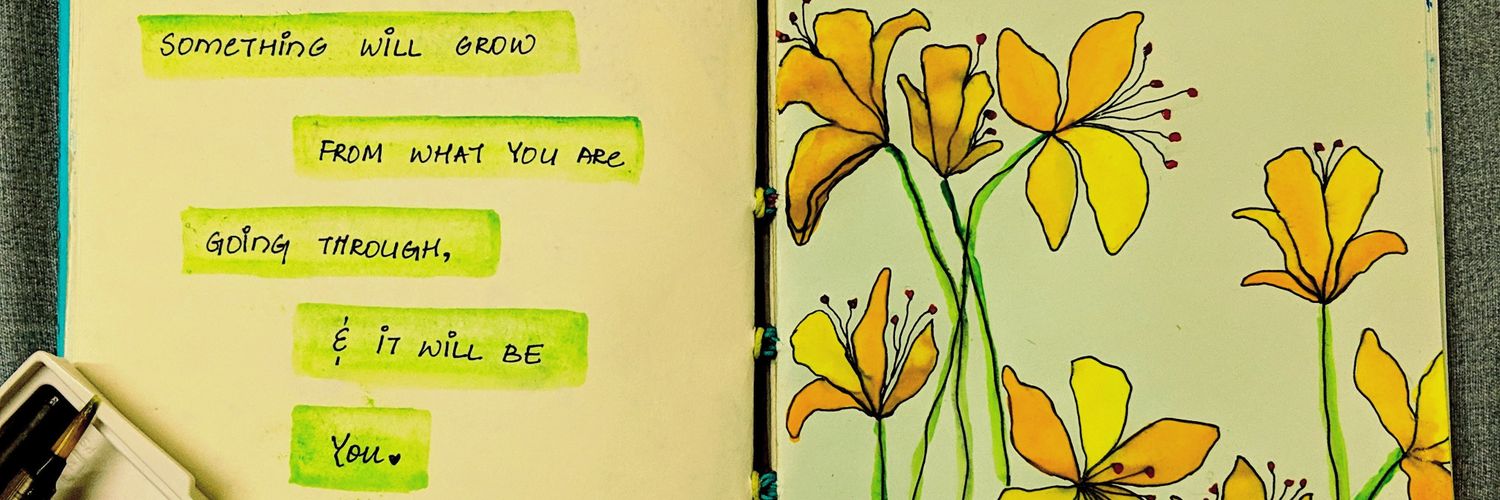 SOMETHING WILL GROW
FROM WHAT YOU ARE
GOING THROUGH,
& IT WILL BE
YOU.♥